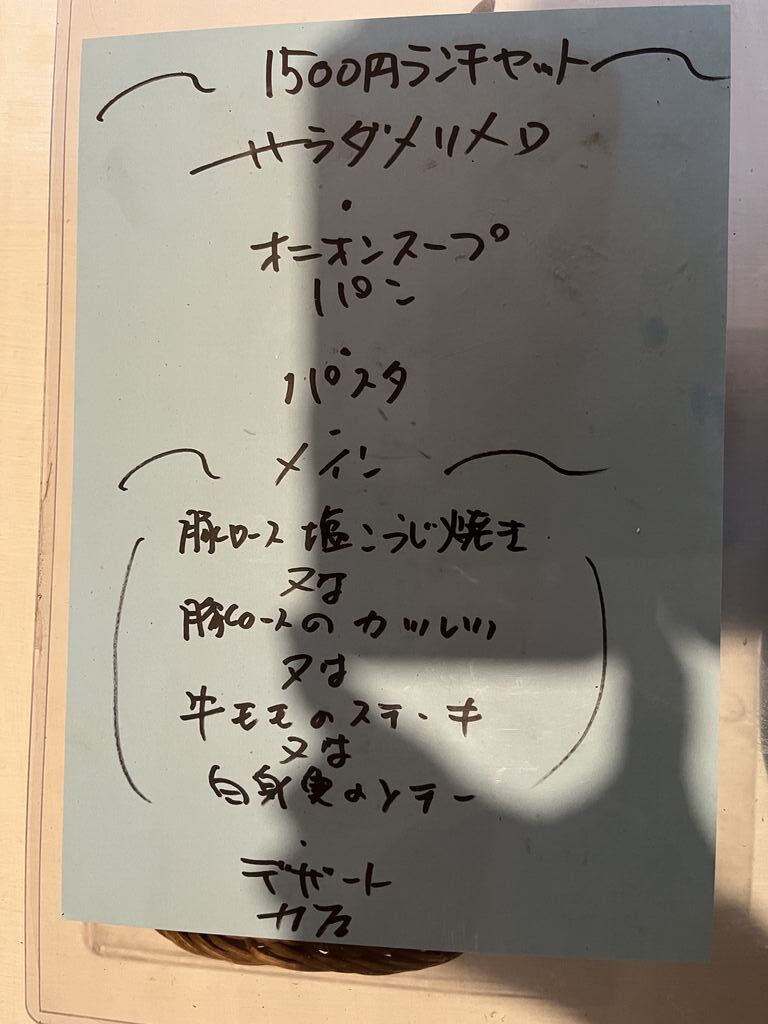 1500円ランチセット
サラダメリメロ
・
オニオンスープ
パン
・
パスタ
・
メイン
豚ロース 塩こうじ焼き
又は
豚ロースの カツレツ
又は
牛モモのステーキ
又は
白身魚のソテー
・
デザート
カフェ